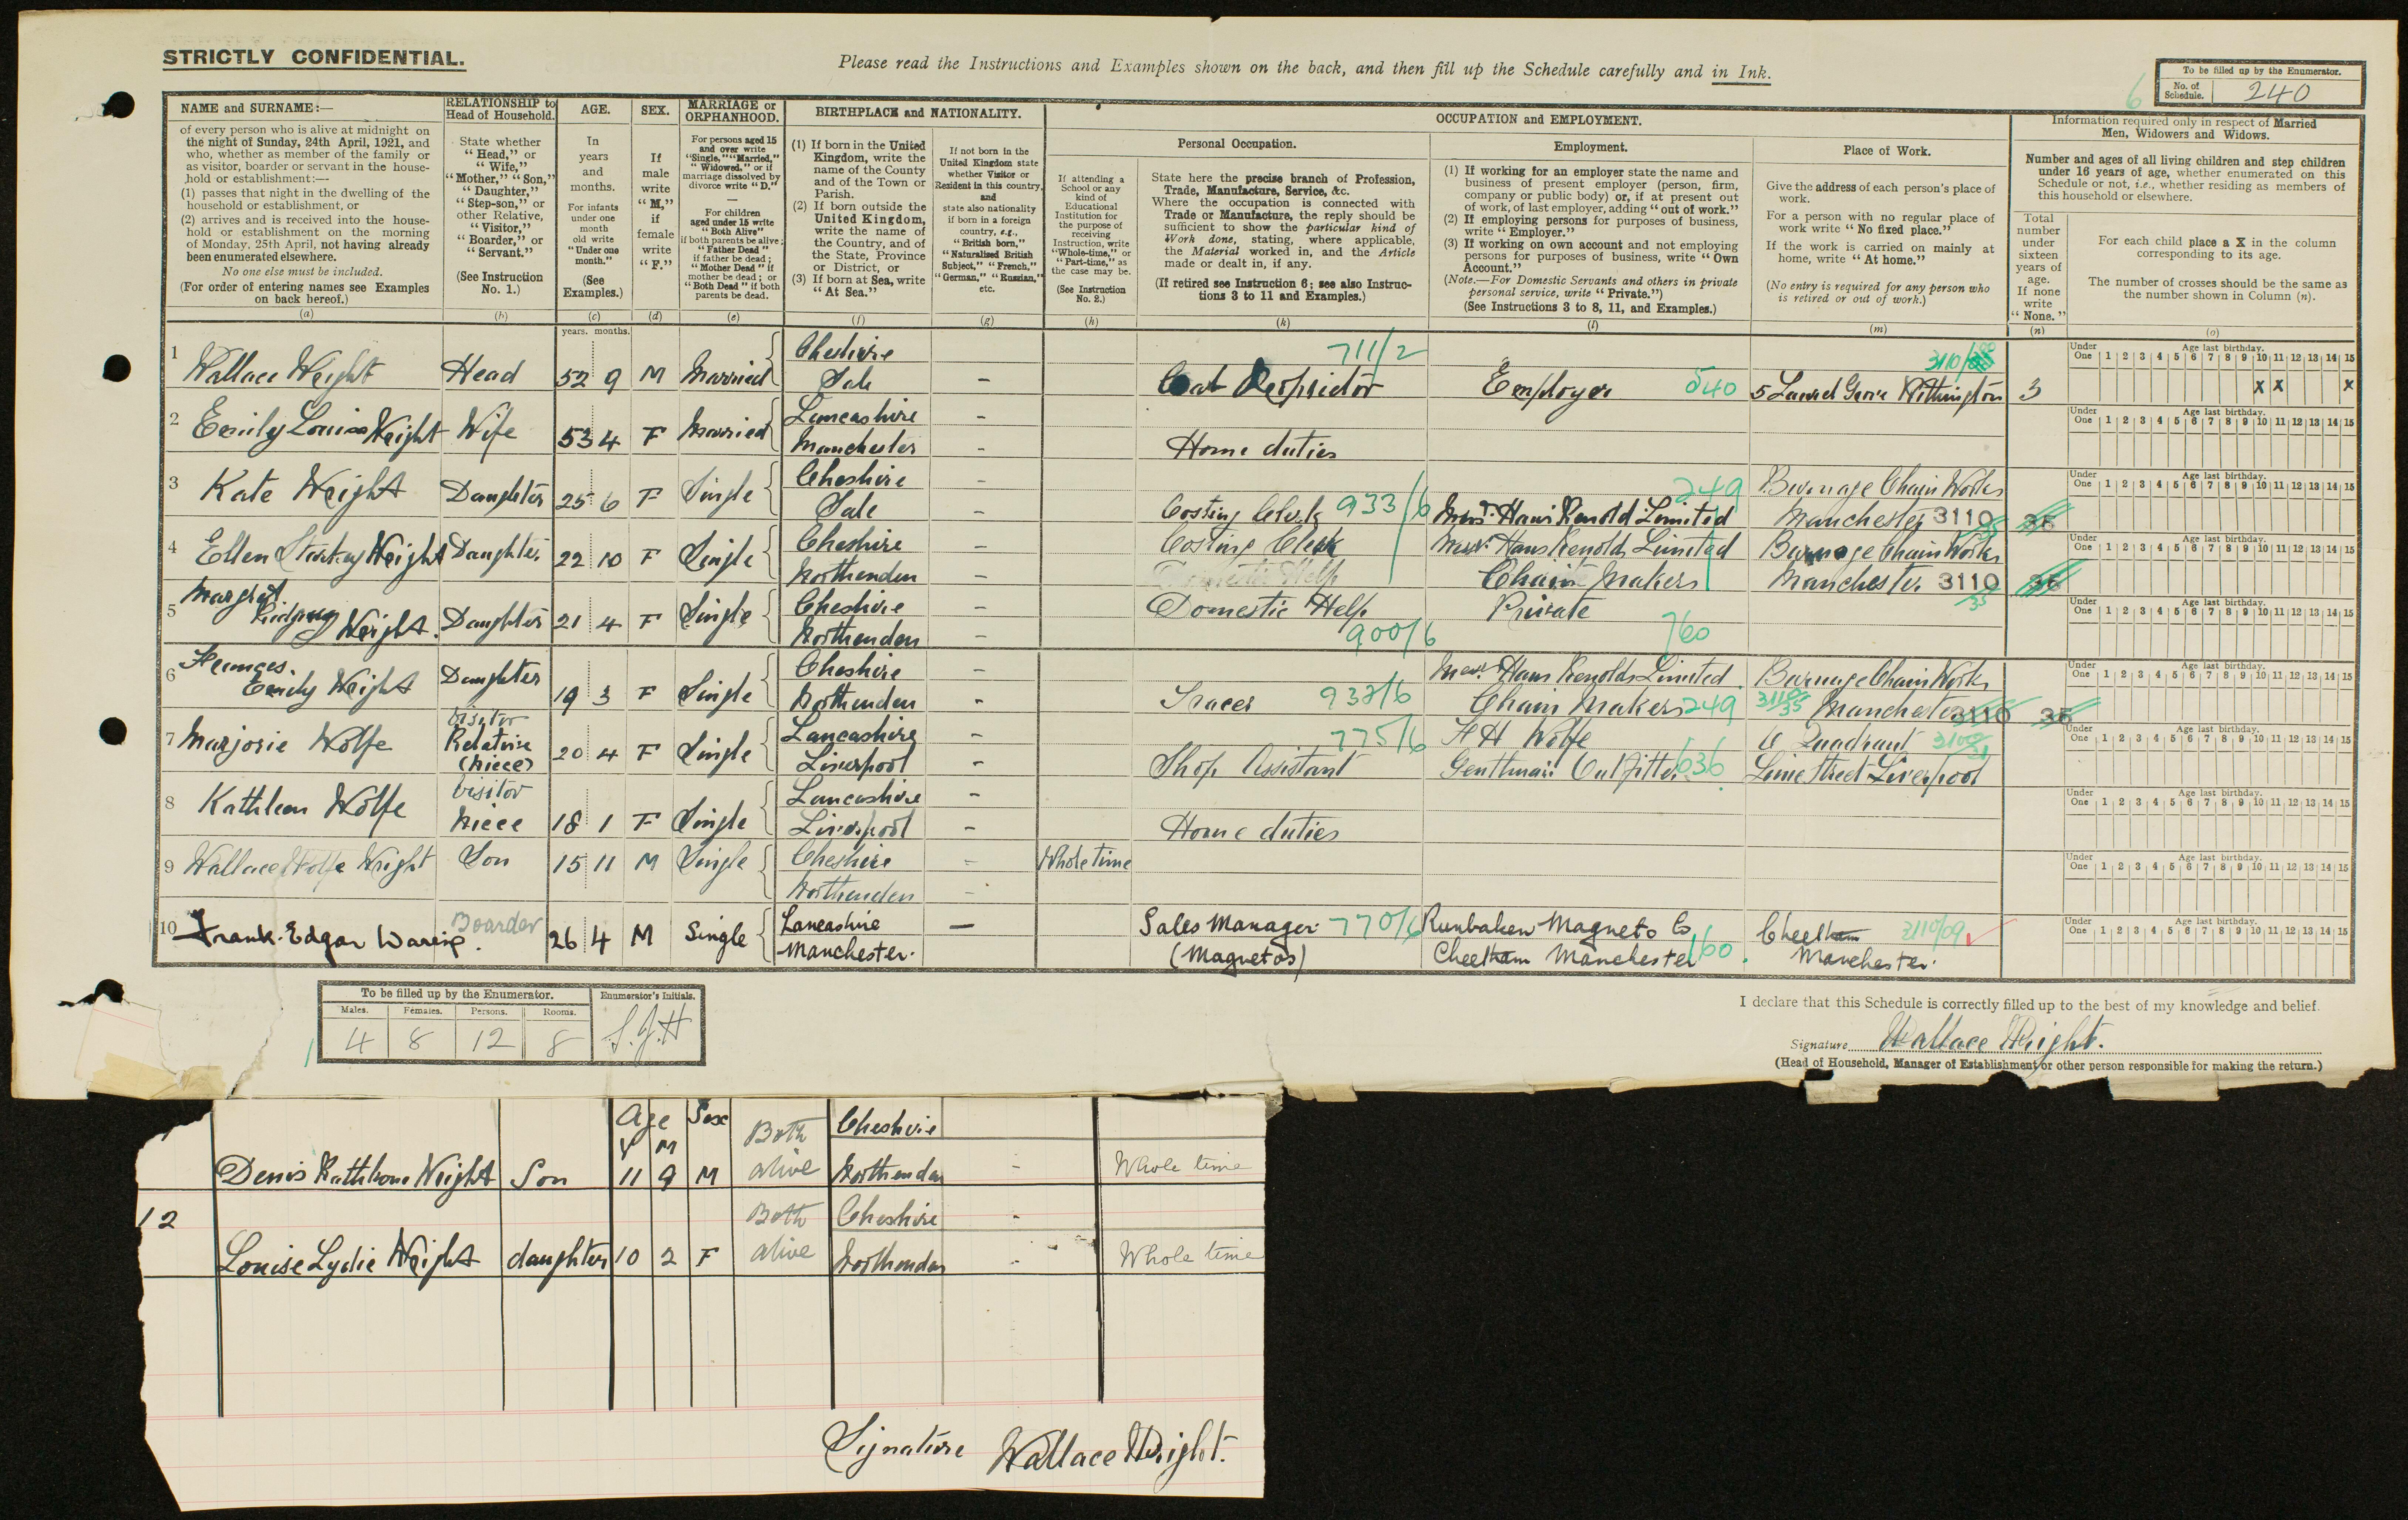 STRICTLY CONFIDENTIAL.
Please read the Instructions and Examples shown on the back, and then fill up the Schedule carefully and in Ink.
To be filled up by the Enumerator.
No. of Schedule. 240
6
NAME and SURNAME:—
of every person who is alive at midnight on
the night of Sunday, 24th April, 1921, and
who, whether as member of the family or
as visitor, boarder or servant in the house-
hold or establishment:—
(1) passes that night in the dwelling of the
household or establishment, or
(2) arrives and is received into the house-
hold or establishment on the morning
of Monday, 25th April, not having already
been enumerated elsewhere.
No one else must be included.
(For order of entering names see Examples
on back hereof.)
(a)
RELATIONSHIP to
Head of Household.
State whether
"Head," or
"Wife,"
"Mother," "Son,"
"Daughter,"
"Step-son," or
other Relative,
"Visitor,"
"Boarder," or
"Servant."
(See Instruction
No. 1.)
(b)
AGE.
In
years
and
months.
For infants
under one
month
old write
"Under one
month."
(See
Examples.)
(c)
SEX.
If
male
write
"M,"
if
female
write
"F."
(d)
MARRIAGE or
ORPHANHOOD.
For persons aged 15
and over write
"Single," "Married,"
"Widowed," or if
marriage dissolved by
divorce write "D."
For children
aged under 15 write
"Both Alive"
if both parents be alive;
"Father Dead"
if father be dead;
"Mother Dead" if
mother be dead; or
"Both Dead" if both
parents be dead.
(e)
BIRTHPLACE and NATIONALITY.
(1) If born in the United
Kingdom, write the
name of the County
and of the Town or
Parish.
(2) If born outside the
United Kingdom,
write the name of
the Country, and of
the State, Province
or District, or
(3) If born at Sea, write
"At Sea."
(f)
If not born in the
United Kingdom state
whether Visitor or
Resident in this country,
and
state also nationality
if born in a foreign
country, e.g.,
"British born,"
"Naturalised British
Subject," "French,"
"German," "Russian,"
etc.
(g)
OCCUPATION and EMPLOYMENT.
If attending a
School or any
kind of
Educational
Institution for
the purpose of
receiving
Instruction, write
"Whole-time," or
"Part-time," as
the case may be.
(See Instruction
No. 2.)
(h)
Personal Occupation.
State here the precise branch of Profession,
Trade, Manufacture, Service, &c.
Where the occupation is connected with
Trade or Manufacture, the reply should be
sufficient to show the particular kind of
Work done, stating, where applicable,
the Material worked in, and the Article
made or dealt in, if any.
(If retired see Instruction 6; see also Instruc-
tions 3 to 11 and Examples.)
(k)
Employment.
(1) If working for an employer state the name and
business of present employer (person, firm,
company or public body) or, if at present out
of work, of last employer, adding "out of work."
(2) If employing persons for purposes of business,
write "Employer."
(3) If working on own account and not employing
persons for purposes of business, write "Own
Account."
(Note.—For Domestic Servants and others in private
personal service, write "Private.")
(See Instructions 3 to 8, 11, and Examples.)
(l)
Place of Work.
Give the address of each person's place of
work.
For a person with no regular place of
work write "No fixed place."
If the work is carried on mainly at
home, write "At home."
(No entry is required for any person who
is retired or out of work.)
(m)
Information required only in respect of Married
Men, Widowers and Widows.
Number and ages of all living children and step children
under 16 years of age, whether enumerated on this
Schedule or not, i.e., whether residing as members of
this household or elsewhere.
Total
number
under
sixteen
years of
age.
If none
write
"None."
(n)
For each child place a X in the column
corresponding to its age.
The number of crosses should be the same as
the number shown in Column (n).
(o)
years. months.
1 Wallace Wright Head 52 9 M Married Cheshire Sale - 711/2 Employer 540 5 Laurel Grove Withington 3110 3 x x x
2 Emily Louisa Wright Wife 53 4 F Married Lancashire Manchester - Home duties
3 Kate Wright Daughter 25 6 F Single Cheshire Sale - Costing Clerk 933/6 Messrs Hans Renold Limited 249 Burnage Chain Works Manchester 3110 35
4 Ellen Wright Daughter 22 10 F Single Cheshire Northenden - Costing Clerk Messrs Hans Renolds Limited Chain Makers Burnage Chain Works Manchester 3110 35
5 Margret Wright. Daughter 21 4 F Single Cheshire Northenden - Domestic Help 900/6 Private 760
6 Frances Emily Wright Daughter 19 3 F Single Cheshire Northenden - Tracer 938/6 Messrs Hans Renolds Limited Chain Makers 249 Burnage Chain Works Manchester 3110 35
7 Marjorie Wolfe Visitor Relative (Niece) 20 4 F Single Lancashire Liverpool - Shop Assistant 775/6 Wolfe Gentmans Outfitter 636 Quadrant Lime Street Liverpool
8 Kathleen Wolfe Visitor Niece 18 1 F Single Lancashire Liverpool - Home duties
9 Wallace Wolfe Wright Son 15 11 M Single Cheshire Northenden - Whole time
10 Frank Edgar Waring. Boarder 26 4 M Single Lancashire Manchester. — Sales Manager (Magnetos) 770/6 Runbaken Magneto Co Cheetham Manchester 160. Cheetham Manchester. 3110/09
Under One 1 2 3 4 5 6 7 8 9 10 11 12 13 14 15
Age last birthday.
To be filled up by the Enumerator.
Males. Females. Persons. Rooms.
4 8 12 8
Enumerator's Initials.
I declare that this Schedule is correctly filled up to the best of my knowledge and belief.
Signature Wallace Wright.
(Head of Household, Manager of Establishment or other person responsible for making the return.)
Age Sex
Y M
Denis Rathbone Wright Son 11 9 M Both alive Cheshire Northenden - Whole time
12 Louise Lydie Wright daughter 10 2 F Both alive Cheshire Northenden - Whole time
Signature Wallace Wright.